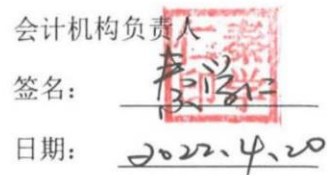 会计机构负责人
签名：秦学仁
日期：2022.4.20